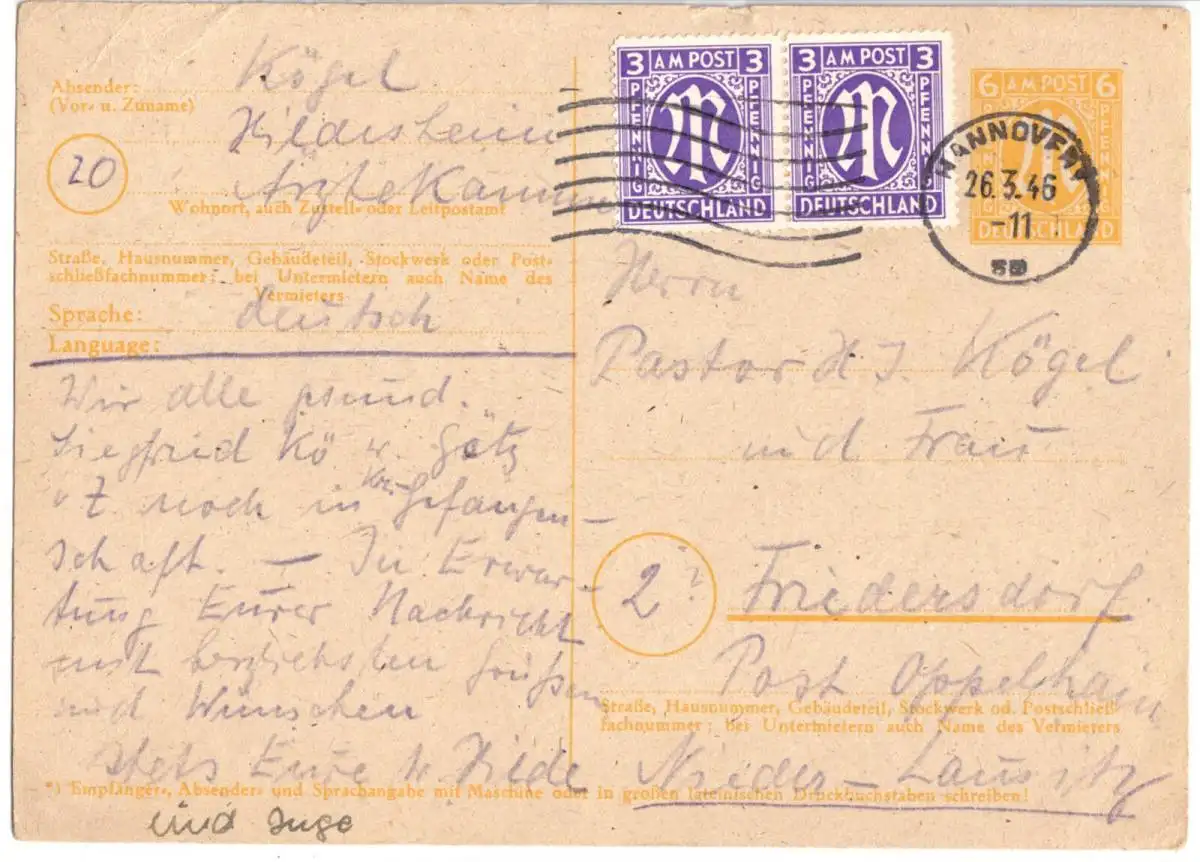 Absender:
(Vor- u. Zuname)
Kögel
20
Hildesheim
Ärztekammer
Wohnort, auch Zustell- oder Leitpostamt
Straße, Hausnummer, Gebäudeteil, Stockwerk oder Post-
schließfachnummer; bei Untermietern auch Name des
Vermieters
Sprache: deutsch
Language:
Wir alle gesund.
Siegfried Kö u. Götz
" Z. noch in Kr. Gefangen-
schaft. — In Erwar-
tung Eurer Nachricht
mit herzlichsten Grüßen
und Wünschen
stets Eure Hilde
und Inge
3 AM POST 3
PFENNIG PFENNIG
DEUTSCHLAND
3 AM POST 3
PFENNIG PFENNIG
DEUTSCHLAND
6 AM POST 6
PFENNIG PFENNIG
DEUTSCHLAND
HANNOVER
26.3.46
-11
Herrn
Pastor H J. Kögel
und Frau
2 ?
Friedersdorf
Post Oppelhain
Straße, Hausnummer, Gebäudeteil, Stockwerk od. Postschließ-
fachnummer; bei Untermietern auch Name des Vermieters
Nieder-Lausitz
*) Empfänger-, Absender- und Sprachangabe mit Maschine oder in großen lateinischen Druckbuchstaben schreiben!